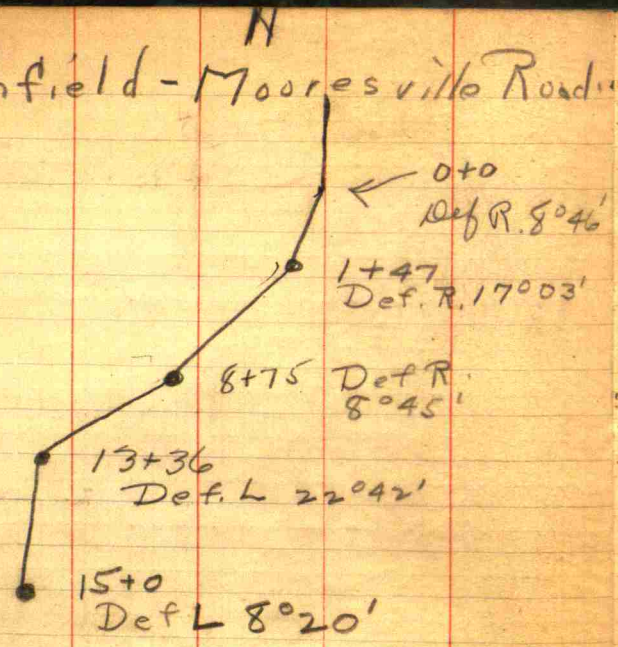 N
nfield - Mooresville Road
0+0
Def R. 8°46'
1+47
Def. R. 17°03'
8+75 Def R.
8°45'
13+36
Def. L 22°42'
15+0
Def L 8°20'